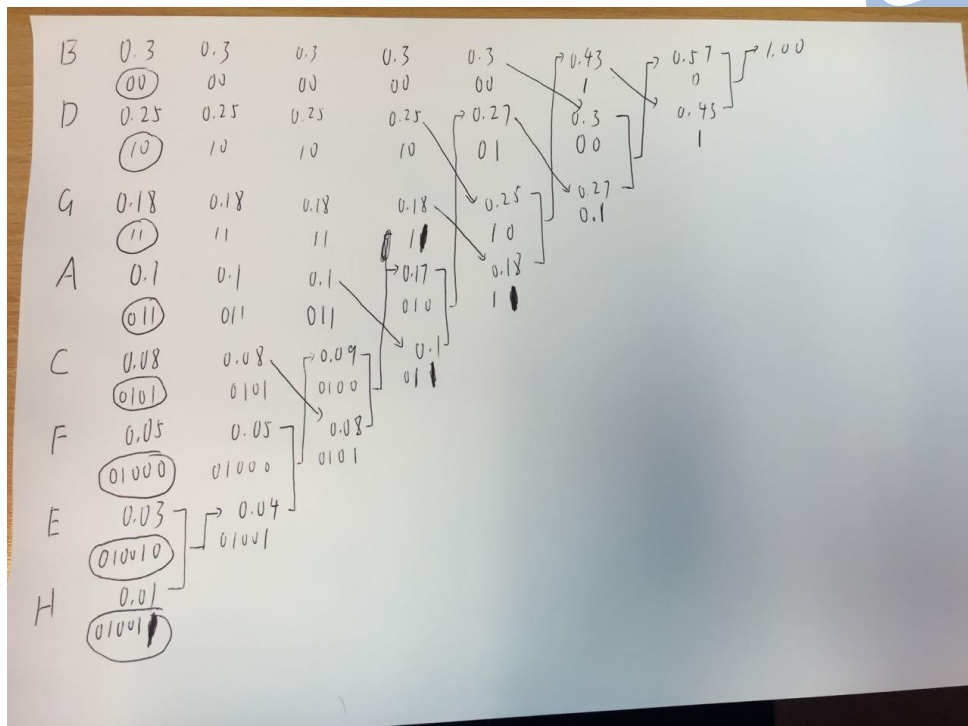 B 0.3 0.3 0.3 0.3 0.3 0.43 0.57 1.00
00 00 00 00 00 1 0
D 0.25 0.25 0.25 0.25 0.27 0.3 0.43
10 10 10 10 01 00 1
G 0.18 0.18 0.18 0.18 0.25 0.27
11 11 11 11 10 0.1
A 0.1 0.1 0.1 0.17 0.18
011 011 011 010 11
C 0.08 0.08 0.09 0.1
0101 0101 0100 011
F 0.05 0.05 0.08
01000 01000 0101
E 0.03 0.04
010010 01001
H 0.01
010011